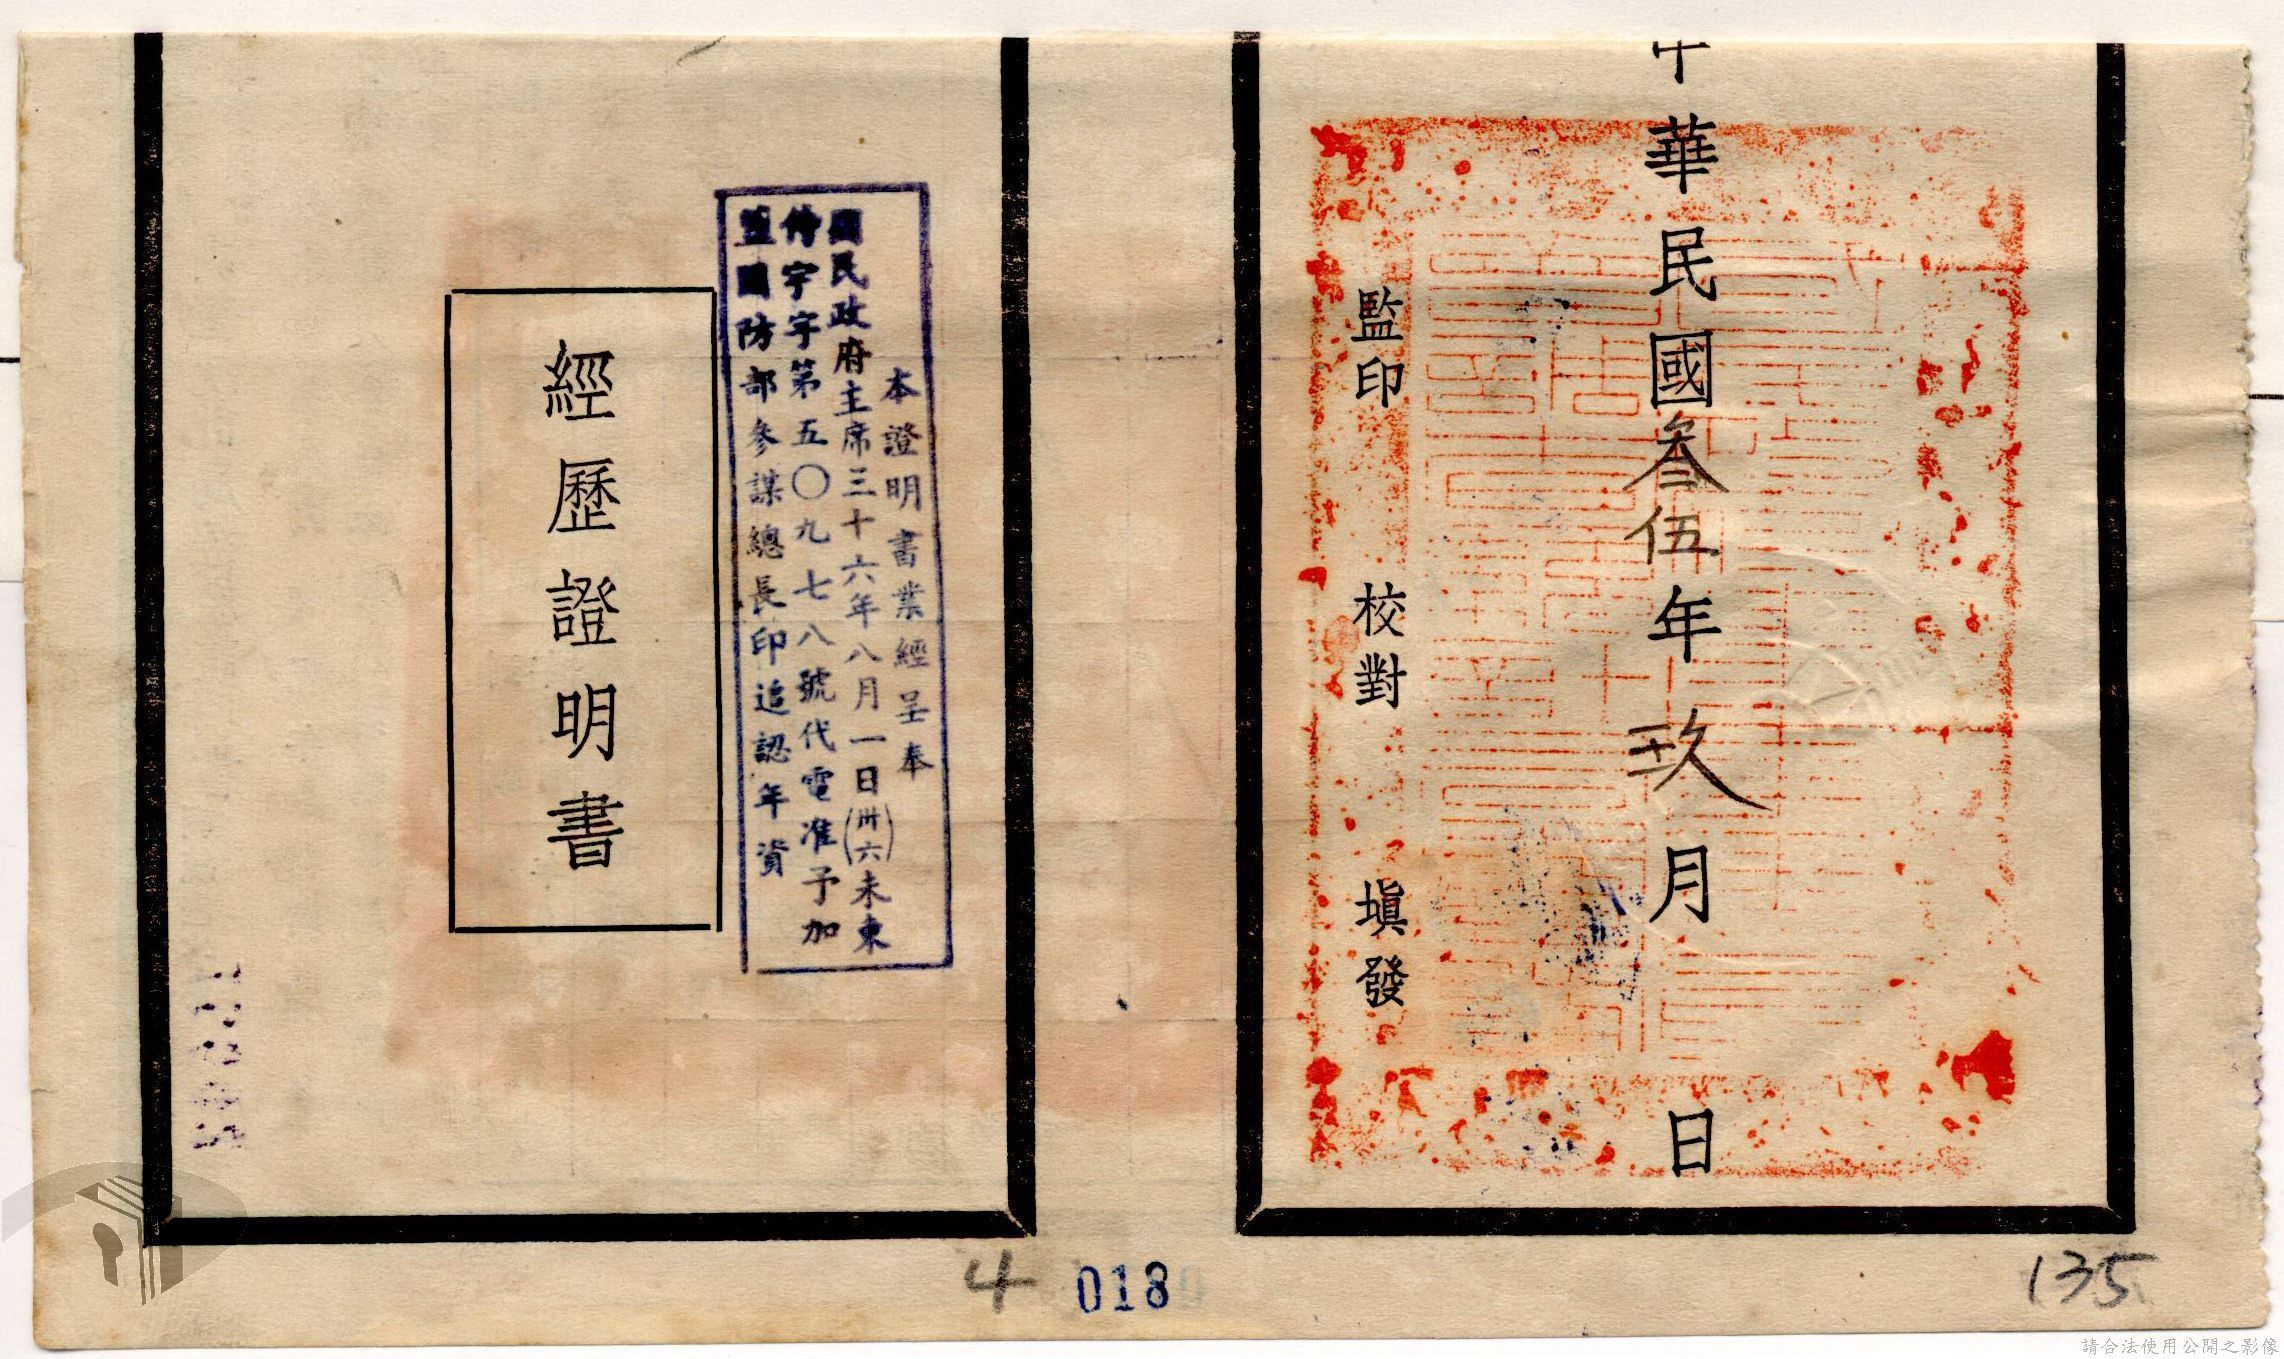 中華民國叁伍年玖月日
監印 校對 塡發
本證明書業經呈奉
國民政府主席三十六年八月一日(卅六)未東
侍宇字第五〇九七八號代電准予加
蓋國防部參謀總長印追認年資
經歷證明書
4
018
135
請合法使用公開之影像